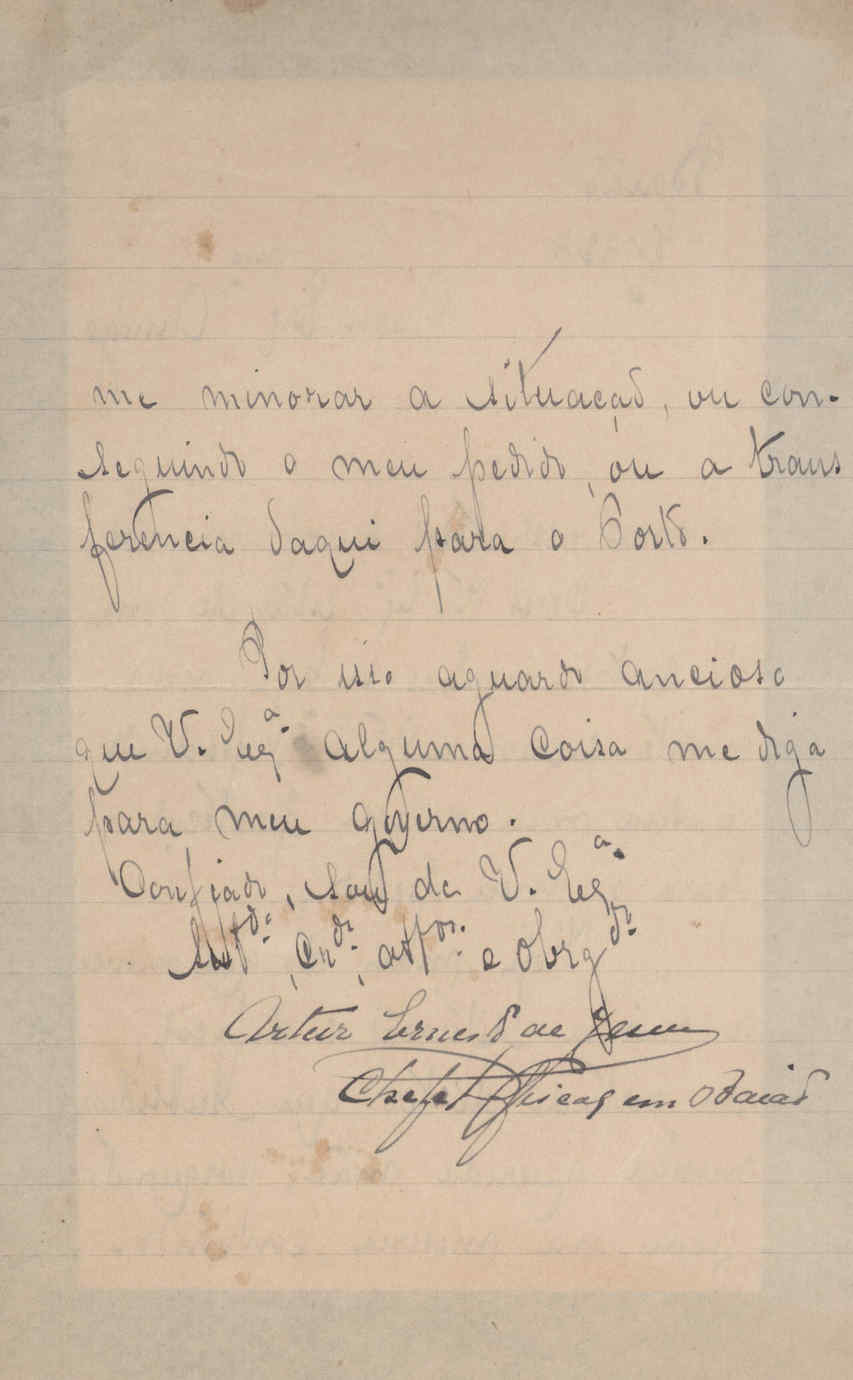 me minorar a situação, ou con-
seguindo o meu pedido, ou a trans
ferencia daqui para o Porto.
Por isso aguardo ancioso
que V. Exª alguma coisa me diga
para meu governo.
Confiado, sou de V. Exª.
Cr.do, att.or e Obrg.do
Artur Ernesto de
Chefe em Baião